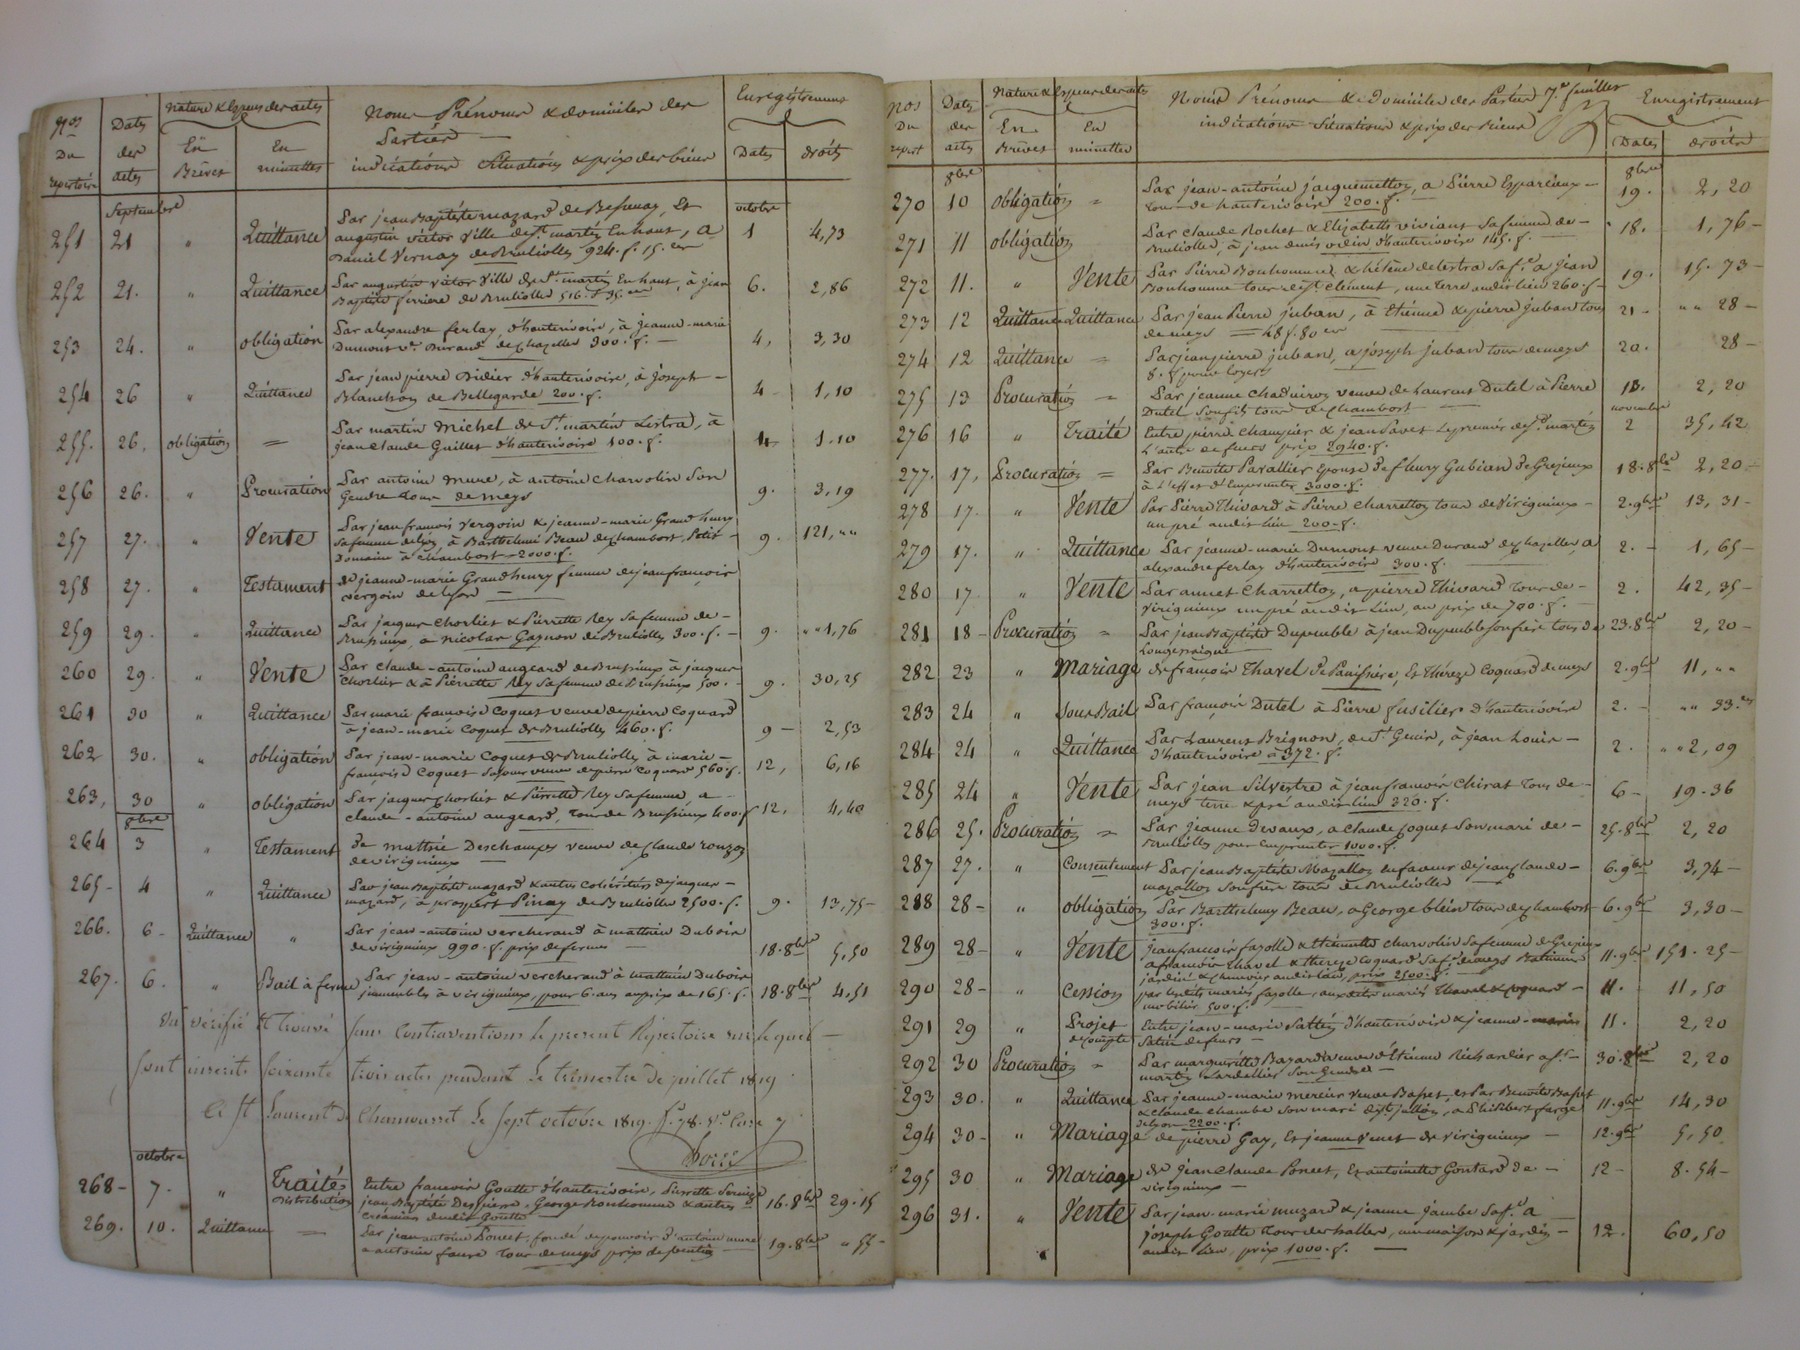 Nos Du repertoire
Dates des actes
Nature & Espèces des actes
En Brévet
En minuttes
Noms Prénoms & domiciles des
Parties
indications Situations & prix des biens
Enregistrement
Dates
droits
Septembre
octobre
251 21 " Quittance Par jean Baptiste mazard de Bessenay, Et
augustin victor Ville de St. martin En haut, a 1 4,73
Daniel Vernay de Brulliolles 924. f. 15. c.
252 21. " Quittance Par augustin victor Ville de St. martin En haut, à jean 6. 2,86
Baptiste ferriere de Brulliolles 516. f 35. c
253 24. " obligation Par alexandre ferlay, d'hauterivoire, à jeanne-marie 4, 3,30
Dumont ve. Durand de Chazelles 300. f. —
254 26 " Quittance Par jean pierre Didier d'hauterivoire, à joseph — 4 - 1,10
Blanchon de Bellegarde 200. f.
255. 26. obligation = Par martin Michel de St. martin Lestra, à
jean claude Guillet d'hauterivoire 100. f. 4 1.10
256 26. " Procuration Par antoine mure, à antoine charvolin Son 9. 3,19
Gendre tous de meys
257 27. " Vente Par jean francois Vergoin & jeanne-marie Grand henry
Sa femme de Lyon, à Barthelmi Beau de Chambost, Petit - 9. 121,""
Domaine à chambost - 2000. f.
258 27. " Testament de jeanne-marie Grandhenry femme de jean francois
vergoin de Lyon —
259 29. " Quittance Par jacques Chorliet & Pierrette Rey Sa femme de - 9. ""1,76
Brussieux, à nicolas Gagnon de Brulliolles 300. f. —
260 29. " Vente Par claude-antoine augeard de Brussieux à jacques
Chorliet & à Pierrette Rey Sa femme de Brussieux 500. - 9. 30,25
261 30 " Quittance Par marie francoise Coquet veuve de pierre Coquard
à jean-marie Coquet de Brulliolles 460. f. 9 — 2,53
262 30. " obligation Par jean-marie Coquet de Brulliolles à marie -
francoise Coquet Sa soeur veuve de pierre Coquard 560. f. 12, 6,16
263, 30 " obligation Par jacques Chorliet & Pierrette Rey Sa femme, a -
claude-antoine augeard, tous de Brussieux 400. f 12, 4,40
8bre
264 3 " Testament De Deschamps veuve de Claude
de virigneux —
265 - 4 " Quittance Par jean Baptiste mazard & autres cohéritiers de jacques -
mazard, à prospert Pinay de Brulliolles 2500. f. 9. 13,75 -
266. 6 - Quittance " Par jean-antoine vercherand à mathieu Dubois
de virigneux 990. f. prix de fermes — 18.8bre 5,50
267. 6. " Bail à ferme Par jean-antoine vercherand à mathieu Dubois
immeubles à virigneux, pour 6. ans au prix de 165. f. 18.8bre 4,51
Vu vérifié Et trouvé Sans Contraventions le present Répertoire Sur lequel —
Sont inscrits Soixante trois actes pendant Le trimestre de juillet 1819
à St Laurent de Chamousset Le Sept octobre 1819. fo. 78. Vo. Case 7
octobre
268 - 7. " Traité Distribution Entre francois Goutte d'hauterivoire, Pierrette
jean Baptiste Despierre, George Bonhomme & autres 16.8bre 29.15
créanciers dudit Goutte
269. 10. Quittance = Par jean antoine Poncet, fondé de pouvoir d'antoine mure
a antoine faure tous de meys prix de 19.8bre " 55 -
Nos Du repert
Dates des actes
Nature & Espèces des actes
En Brévet
En minuttes
Noms Prénoms & Domiciles des Parties 7.e feuillet
indications Situations & prix des Biens
Enregistrement
Dates
droits
8bre
8bre
270 10 obligation = Par jean-antoine jacquemetton, a Pierre Esparcieux - 19. 2,20
tous de hauterivoire 200. f.
271 11 obligation Par claude Rochet & Elizabeth viviant Sa femme de -
Brulliolles, à jean denis d'hauterivoire 145. f. 18. 1,76 -
272 11. " Vente Par Pierre Bonhomme, & hélène delestra Sa fe. a jean
Bonhomme tous de St. clément, une terre audit lieu 260. f - 19. 15.73 -
273 12 Quittance Quittance Par jean Pierre juban, à étienne & pierre juban tous 21 - "" 28 -
de meys = 48 f. 80 c
274 12 Quittance = Par jean pierre juban, a joseph juban tous de meys 20. 28 -
8. f pour loyers
275 13 Procuration = Par jeanne Chaduiron veuve de Laurent Dutel à Pierre 18. 2,20
Dutel Son fils tous de Chambost —
novembre
276 16 " Traité Entre pierre champier & jean Pavet Le premier de St. martin 2 35,42
L'autre de feurs prix 2940. f.
277. 17. Procuration = Par Benoite Parallier Epouse de fleury Gubian de Grezieux 18.8bre 2,20 -
à L'effet d'Emprunter 3000. f.
278 17. " Vente Par Pierre Thivard à Pierre Charretton tous de Virigneux - 2.9bre 13,31 -
un pré audit lieu 200 - f.
279 17. " Quittance Par jeanne-marie Dumont veuve Durand de Chazelles, a 2. - 1,65 -
alexandre ferlay d'hauterivoire 300. f. —
280 17 " Vente Par annet Charretton, a pierre Thivard tous de - 2. 42,35 -
Virigneux un pré audit Lieu, au prix de 700. f. —
281 18 - Procuration = Par jean Baptiste Dupeuble à jean Dupeuble Son frère tous de 23.8bre 2,20 -
Longessaigne
282 23 " Mariage de francois Thavel de Panissière, Et Thérèze Coquard de meys 2.9bre 11,""
283 24 " Sous Bail Par francois Dutel à Pierre fusilier d'hauterivoire 2. - "" 33.
284 24 " Quittance Par Laurent Brignon, de St. Genis, à jean Louis - 2. ""2,09
d'hauterivoire à 372. f.
285 24 " Vente Par jean Silvestre à jean francois Chirat tous de - 6 - 19.36
meys terre & pré audit lieu 320. f.
286 25. Procuration = Par jeanne Devaux, a claude Coquet Son mari de - 25.8bre 2,20
Brulliolles pour Emprunter 1000. f.
287 27. " Consentement Par jean Baptiste Mazallon en faveur de jean Claude - 6.9bre 3,74 -
mazallon Son frère tous de Brulliolles —
288 28 - " obligation Par Barthelemy Beau, a George blein tous de Chambost 6.9bre 3,30 -
300. f.
289 28 - " Vente jean francois fayolle & étiennette charvolin Sa femme de Grezieux
a francois Thavel & Thereze Coquard Sa fe. de meys Batiment 11.9bre 151.25 -
jardin & Chenevier audit lieu, prix 2500. f. —
290 28 - " Cession par lesdits mariés fayolle, auxdits mariés Thavel & Coquard - 11. 11,50
mobilier 500. f.
291 29 " Projet de compte Entre jean-marie d'hauterivoire & jeanne - 11. 2,20
de feurs -
292 30 Procuration = Par marguerite Bazard veuve d'étienne Richarlier a St - 30.8bre 2,20
martin Lardellier Son Gendre —
293 30. " Quittance Par jeanne-marie mercier veuve Basset, et Par Benoite Basset
& claude chambe Son mari de St. julien, a Philibert farge 11.9bre 14,30
de Lyon 2200. f.
294 30 - " Mariage de pierre Gay, Et jeanne Venet de virigneux — 12.9bre 5,50
295 30 " Mariage de jean Claude Poncet, Et antoinette Gontard de - 12 - 8.54 -
virigneux —
296 31. " Vente Par jean-marie muzard & jeanne jambe Sa fe. a
joseph Goutte tous des halles, une maison & jardin - 12. 60,50
audit lieu, prix 1000. f. —